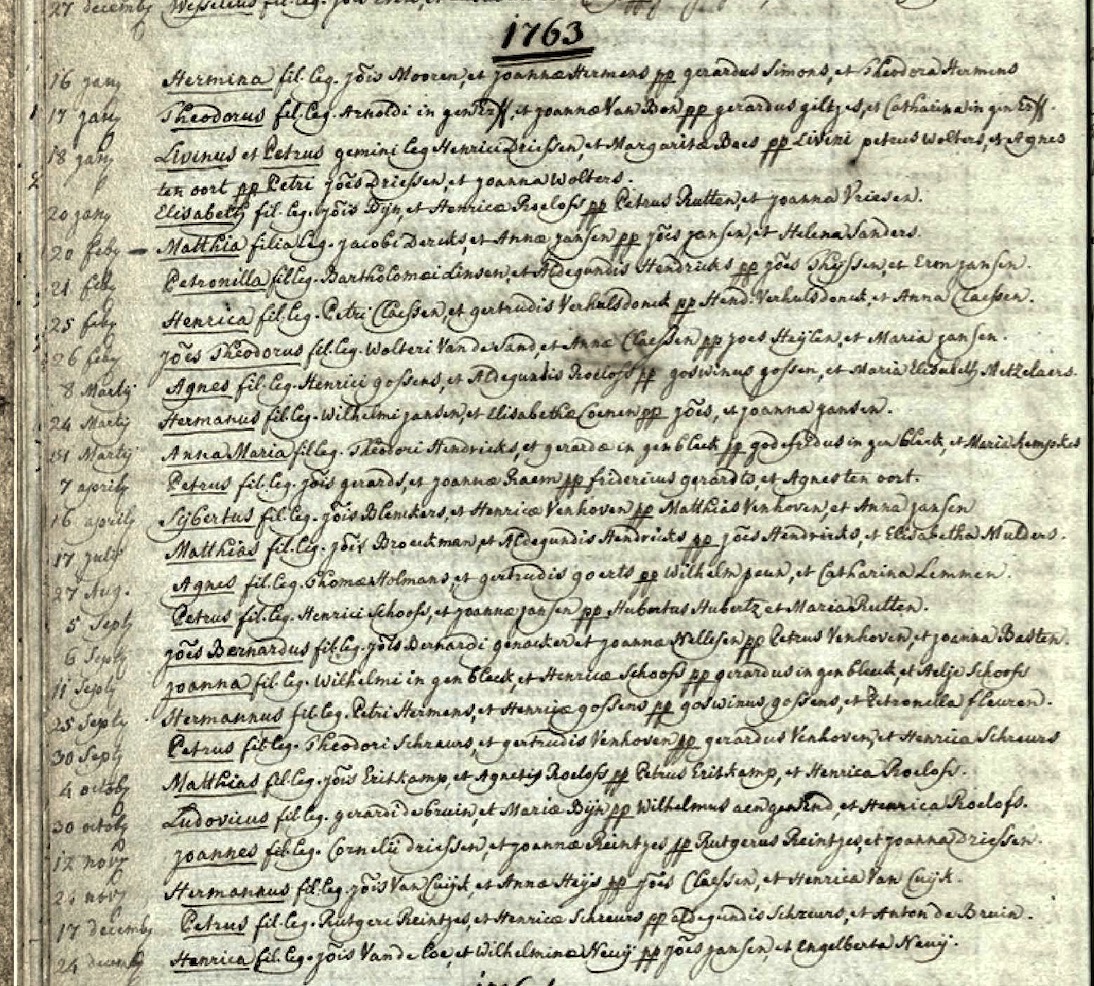 27 decemb Wesselus fil. leg. Jois
1763
16 janỹ Hermina fil. leg. jōis Mooren, et joannæ Hermens pp gerardus Simons, et Theodora Hermens
17 janỹ Theodorus fil. leg. Arnoldi in gen Erff, et joannæ Van Bon pp gerardus giltjes, et Catharina in gen Erff.
18 janỹ Livinus et Petrus gemini leg Henrici Driessen, et Margaritæ Baes pp Livini petrus wolters, et Agnes
ten oort pp Petri jōis Driessen, et joanna wolters.
20 janỹ Elisabeth fil. leg. jōis Dijn, et Henricæ Roelofs pp Petrus Rutten, et joanna Vriesen.
20 febỹ – Matthia filia leg. jacobi Dercks, et Annæ jansen pp jōis jansen, et Helena Sanders.
21 febỹ Petronilla fil leg. Bartholomæi Linsen, et Aldegundis Hendricks pp jōes Thijssen, et Erm jansen.
25 febỹ Henrica fil. leg. Petri Claessen, et gertrudis Verhulsdonck pp Hend: Verhulsdonck, et Anna Claessen.
26 febỹ jōes Theodorus fil. leg. wolteri Van de Sand, et Annæ Claessen pp joes Heijlen, et Maria jansen.
8 Martij Agnes fil. leg. Henrici gossens, et Aldegundis Roelofs pp goswinus gossen, et Maria Elisabeth Metzelaers.
24 Martij Hermanus fil. leg. Wilhelmi jansen, et Elisabethæ Coenen pp jōes, et joanna jansen.
Martij Anna Maria fil leg. Theodori Hendricks, et gerardæ in gen bleck pp godefridus in gen bleek, et Maria hempkes
7 aprilỹ Petrus fil. leg. jōis gerards, et joannæ Raem pp fridericus gerardts et Agnes ten oort.
16 aprilỹ Sijbertus fil. leg. jōis Blenckers, et Henricæ Venhoven pp Matthias Venhoven, et Anna jansen
17 julỹ Matthias fil. leg. jōis Broeckman, et Aldegundis Hendricks pp jōes Hendricks, et Elisabetha Mulders.
27 Aug. Agnes fil. leg. Thomæ Holmans, et gertrudis goerts pp wilhelm peun, et Catharina Lemmen.
5 Septỹ Petrus fil. leg. Henrici Schoofs, et joannæ jansen pp Hubertus Hubertz et Maria Rutten.
6 Septỹ jōes Bernardus fil. leg. jōis Bernardi genacker et joanna Nellesen pp Petrus Venhoven, et joanna Basten.
11 Septỹ joanna fil. leg. Wilhelmi in gen bleck, et Henricæ Schoofs pp gerardus in gen bleeck, et Aelje Schoofs
25 Septỹ Hermannus fil. leg. Petri Hermens, et Henricæ gossens pp goswinus gossens, et Petronella fleuren.
30 Septỹ Petrus fil. leg. Theodori Schreurs, et gertrudis Venhoven pp gerardus Venhoven, et Henrica Schreurs
4 octobỹ Matthias fil. leg. jōis Eritkamp, et Agnetis Roelofs pp Petrus Eritkamp, et Henrica Roelofs.
30 octobỹ Ludovicus fil. leg. gerardi de bruin, et Mariæ Dijn pp Wilhelmus aengen End, et Henrica Roelofs.
12 novỹ joannes fil. leg. Cornelii driessen, et joannæ Reintjes pp Rutgerus Reintjes, et joanna Driessen.
novỹ Hermannus fil. leg. jōis Van Cuijk, et Annæ Heijs pp jōes Claessen, et Henrica Van Cuijk.
17 decembỹ Petrus fil. leg. Rutgeri Reintjes, et Henricæ Schreurs pp aldegundis Schreurs, et Anton de Bruin.
24 decembỹ Henrica fil. leg. jōis Van de Loe, et Wilhelminæ Neuij pp jōes jansen, et Engelberta Neuij.